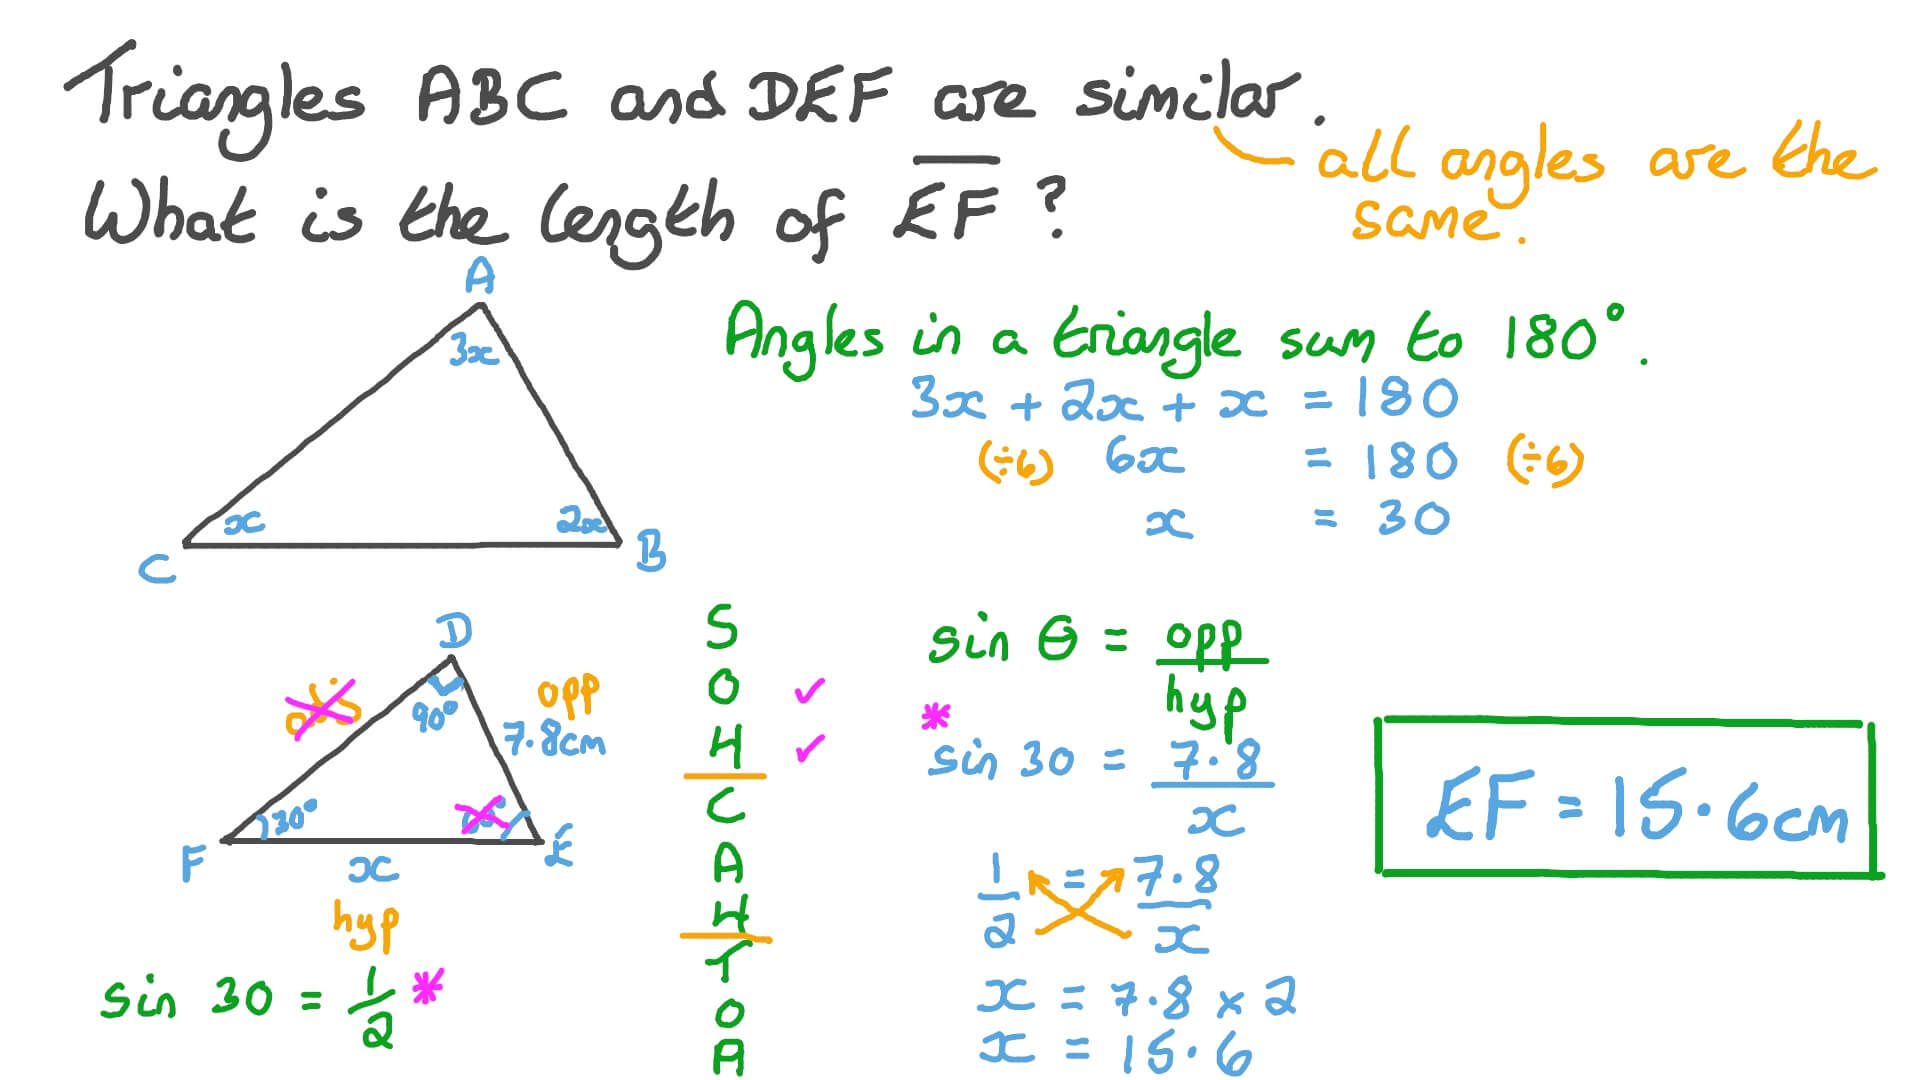 Triangles ABC and DEF are similar.
all angles are the
same.
What is the length of EF?
A
3x
x
2x
C
B
Angles in a triangle sum to 180°.
3x + 2x + x = 180
(÷6) 6x = 180 (÷6)
x = 30
D
opp
90°
7.8cm
30°
F
x
E
hyp
sin 30 = 1/2 *
S
O ✓
H ✓
C
A
H
T
O
A
sin θ = opp/hyp
*
sin 30 = 7.8/x
1/2 = 7.8/x
x = 7.8 × 2
x = 15.6
EF = 15.6cm